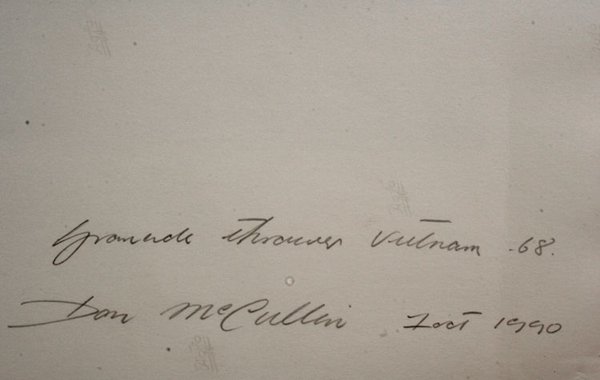 Grenade thrower Vietnam 68.
Don McCullin 1 oct 1990